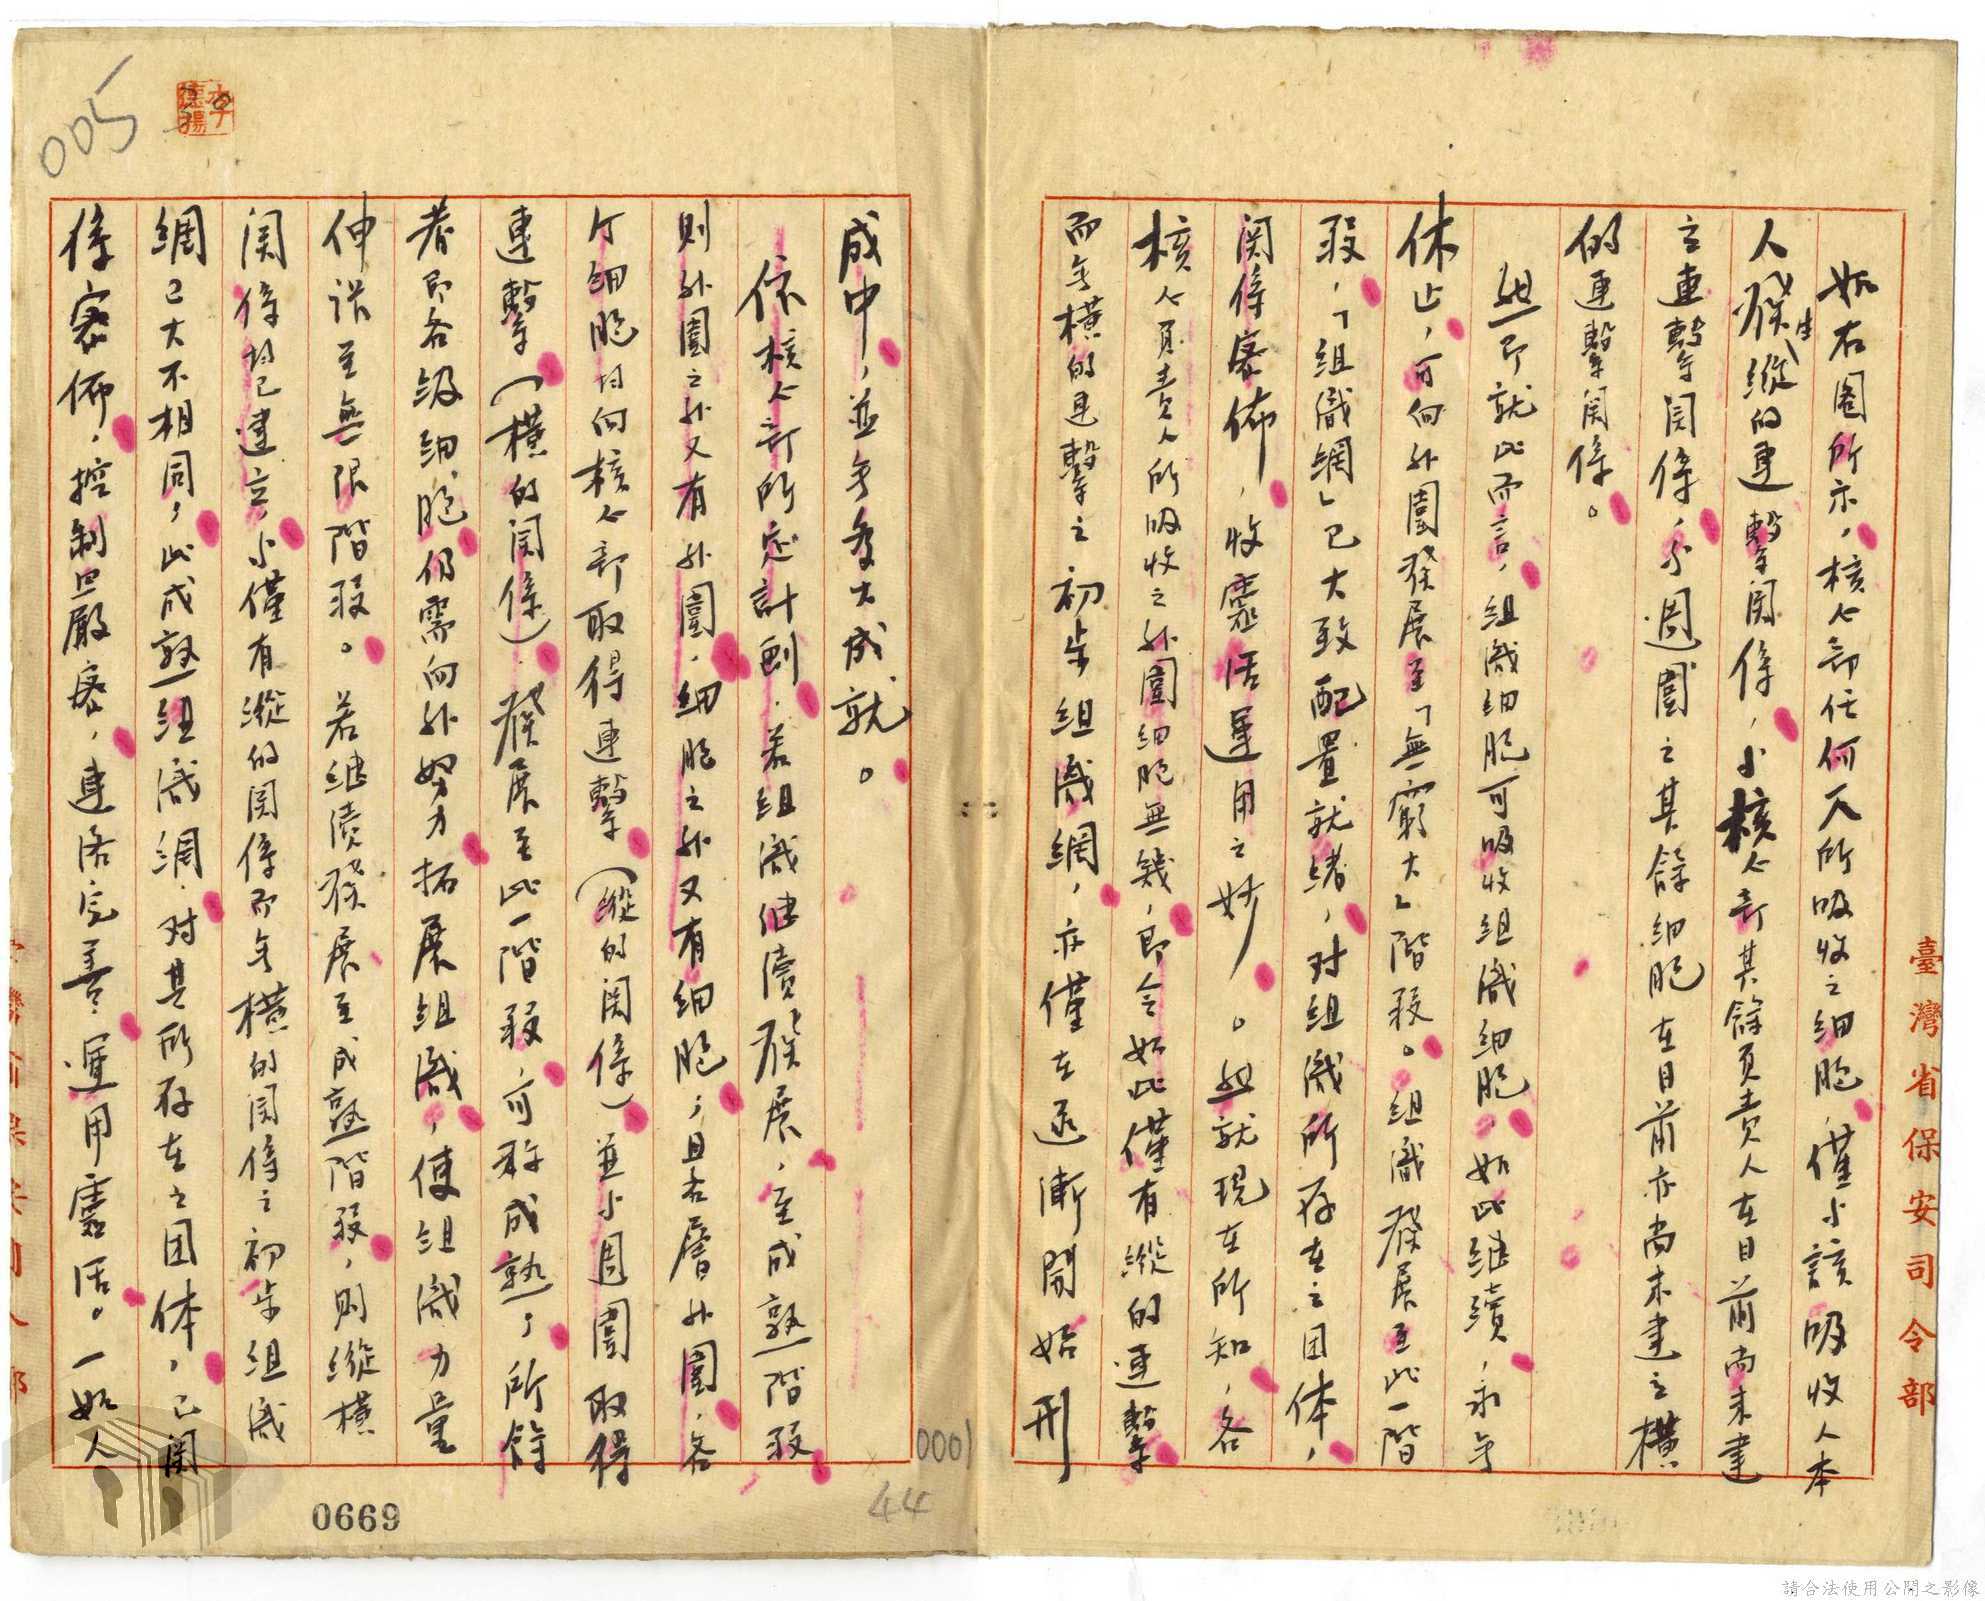 如右圖所示，核心部任何人所吸收之細胞，僅与該吸收人本
人發生縱的連繫関係，与核心部其餘負責人在目前尚未建
立連繫関係，与週圍之其餘細胞在目前亦尚未建立橫
的連繫関係。
然即就此而言，組織細胞可吸收組織細胞，如此継續，永无
休止，可向外圍發展至「無窮大」階段。組織發展至此一階
段，「組織網」已大致配置就緒，对組織所存在之团体，
関係密佈，收靈活運用之妙。然就現在所知，各
核心負責人所吸收之外圍細胞無幾，即令如此僅有縱的連繫
而无橫的連繫之初步組織網，亦僅在逐漸開始形
成中，並无多大成就。
依核心部所定計劃，若組織継續發展，至成熟階段
則外圍之外又有外圍，細胞之外又有細胞，且右層外圍，各
个細胞均向核心部取得連繫（縱的関係）並与週圍取得
連繫（橫的関係）．發展至此一階段，可称成熟，所餘
者即各級細胞仍需向外努力拓展組織，使組織力量
伸張至無限階段。若継續發展至成熟階段，則縱橫
関係均已建立，与僅有縱的関係而无橫的関係之初步組織
網已大不相同，此成熟組織網，对其所存在之团体，已関
係密佈，控制已嚴密，連絡完善，運用靈活。一如人
臺灣省保安司令部
005
李德揚
0669
44
0001
請合法使用公開之影像